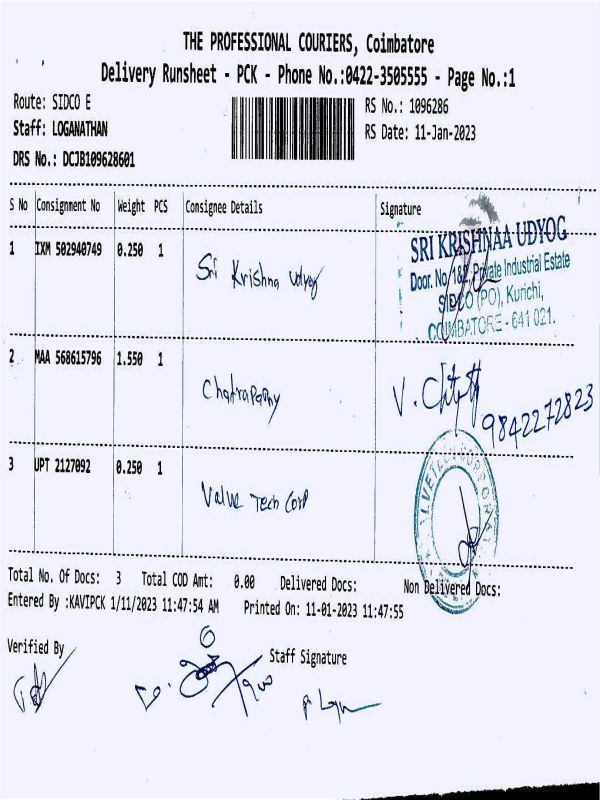 THE PROFESSIONAL COURIERS, Coimbatore
Delivery Runsheet - PCK - Phone No.:0422-3505555 - Page No.:1
Route: SIDCO E
RS No.: 1096286
Staff: LOGANATHAN
RS Date: 11-Jan-2023
DRS No.: DCJB109628601
S No Consignment No Weight PCS Consignee Details Signature
1 IXM 502940749 0.250 1 Sri Krishna Udyog
SRI KRISHNAA UDYOG
Door. No. Private Industrial Estate
SIDCO (PO), Kurichi,
COIMBATORE - 641 021.
2 MAA 568615796 1.550 1 Chatrapathy
V.
9842272823
3 UPT 2127092 0.250 1 Value Tech Corp
Total No. Of Docs: 3 Total COD Amt: 0.00 Delivered Docs: Non Delivered Docs:
Entered By :KAVIPCK 1/11/2023 11:47:54 AM Printed On: 11-01-2023 11:47:55
Verified By
Staff Signature